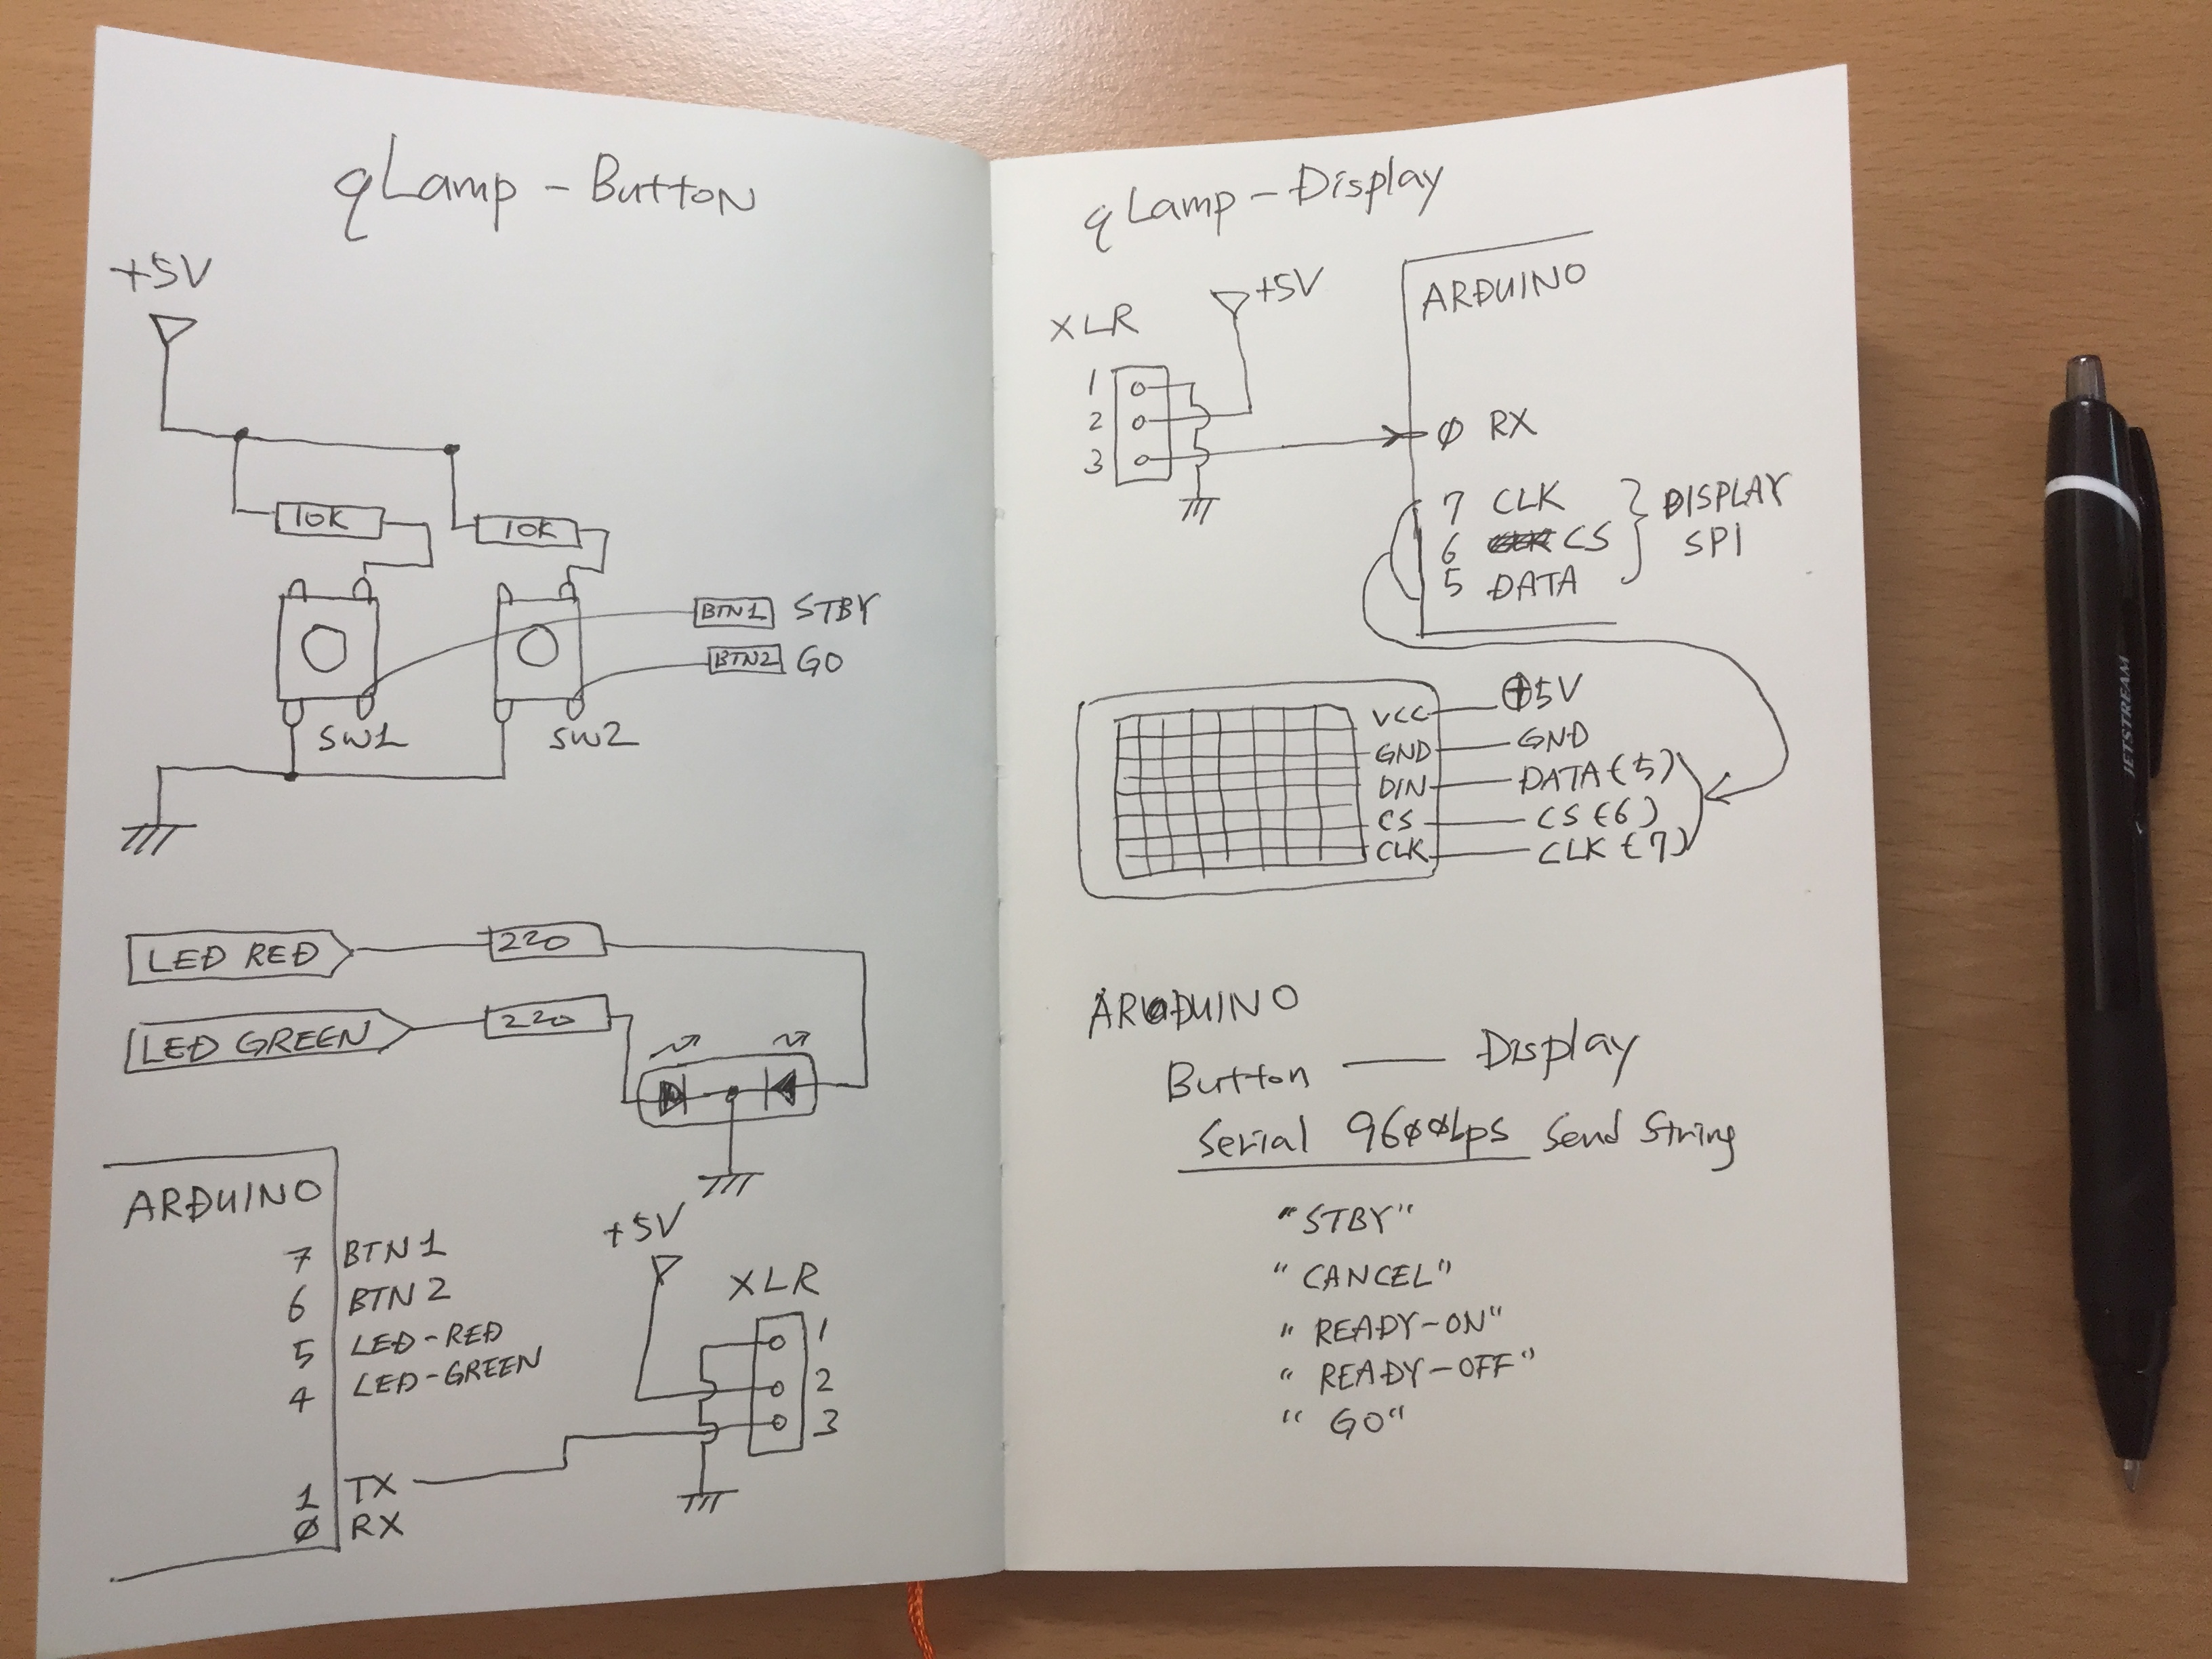 qLamp - Button
+5V
10K
10K
BTN1 STBY
BTN2 GO
SW1
SW2
LED RED
220
LED GREEN
220
ARDUINO
7 BTN1
6 BTN2
5 LED-RED
4 LED-GREEN
1 TX
Ø RX
+5V
XLR
1
2
3
qLamp - Display
XLR
+5V
1
2
3
ARDUINO
Ø RX
7 CLK
6 CS
5 DATA
DISPLAY
SPI
VCC +5V
GND GND
DIN DATA (5)
CS CS (6)
CLK CLK (7)
ARDUINO
Button — Display
Serial 96ØØbps Send String
"STBY"
"CANCEL"
"READY-ON"
"READY-OFF"
"GO"
JETSTREAM